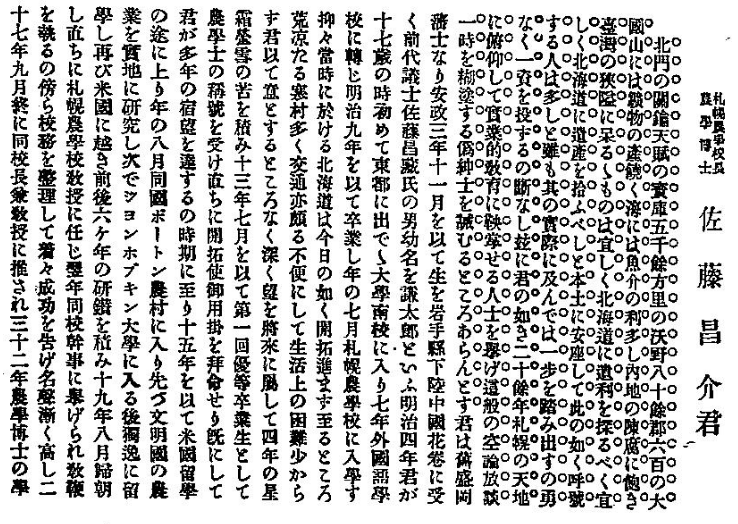 札幌農學校長
農學博士
佐藤昌介君
北門の關鎖天賦の寶庫五千餘方里の沃野八十餘郡六百の大
國山には鑛物の產饒く海には魚介の利多し內地の陳腐に飽き
臺灣の狹隘に呆るゝものは宜しく北海道に遺利を探るべく宜
しく北海道に遺產を拾ふべしと本土に安座して此の如く呼號
する人は多しと雖も其の實際に及んでは一步を踏み出すの勇
なく一資を投ずるの斷なし玆に君の如き二十餘年札幌の天地
に俯仰して實業的敎育に鞅掌せる人士を擧げ這般の空論放談
一時を糊塗する僞紳士を誡むるところあらんとす君は舊盛岡
藩士なり安政三年十一月を以て生を岩手縣下陸中國花卷に受
く前代議士佐藤昌藏氏の男幼名を謙太郎といふ明治四年君が
十七歲の時初めて東都に出でゝ大學南校に入り七年外國語學
校に轉じ明治九年を以て卒業し年の七月札幌農學校に入學す
抑々當時に於ける北海道は今日の如く開拓進まず至るところ
荒凉たる寒村多く交通亦頗る不便にして生活上の困難少から
ず君以て意とするところなく深く望を將來に屬して四年の星
霜螢雪の苦を積み十三年七月を以て第一回優等卒業生として
農學士の稱號を受け直ちに開拓使御用掛を拜命せり旣にして
君が多年の宿望を達するの時期に至り十五年を以て米國留學
の途に上り年の八月同國ボートン農村に入り先づ文明國の農
業を實地に硏究し次でジヨンホプキン大學に入る後獨逸に留
學し再び米國に越き前後六ケ年の硏鑽を積み十九年八月歸朝
し直ちに札幌農學校敎授に任じ翌年同校幹事に擧げられ敎鞭
を執るの傍ら校務を整理して着々成功を吿げ名聲漸く高し二
十七年九月終に同校長兼敎授に推され三十二年農學博士の學